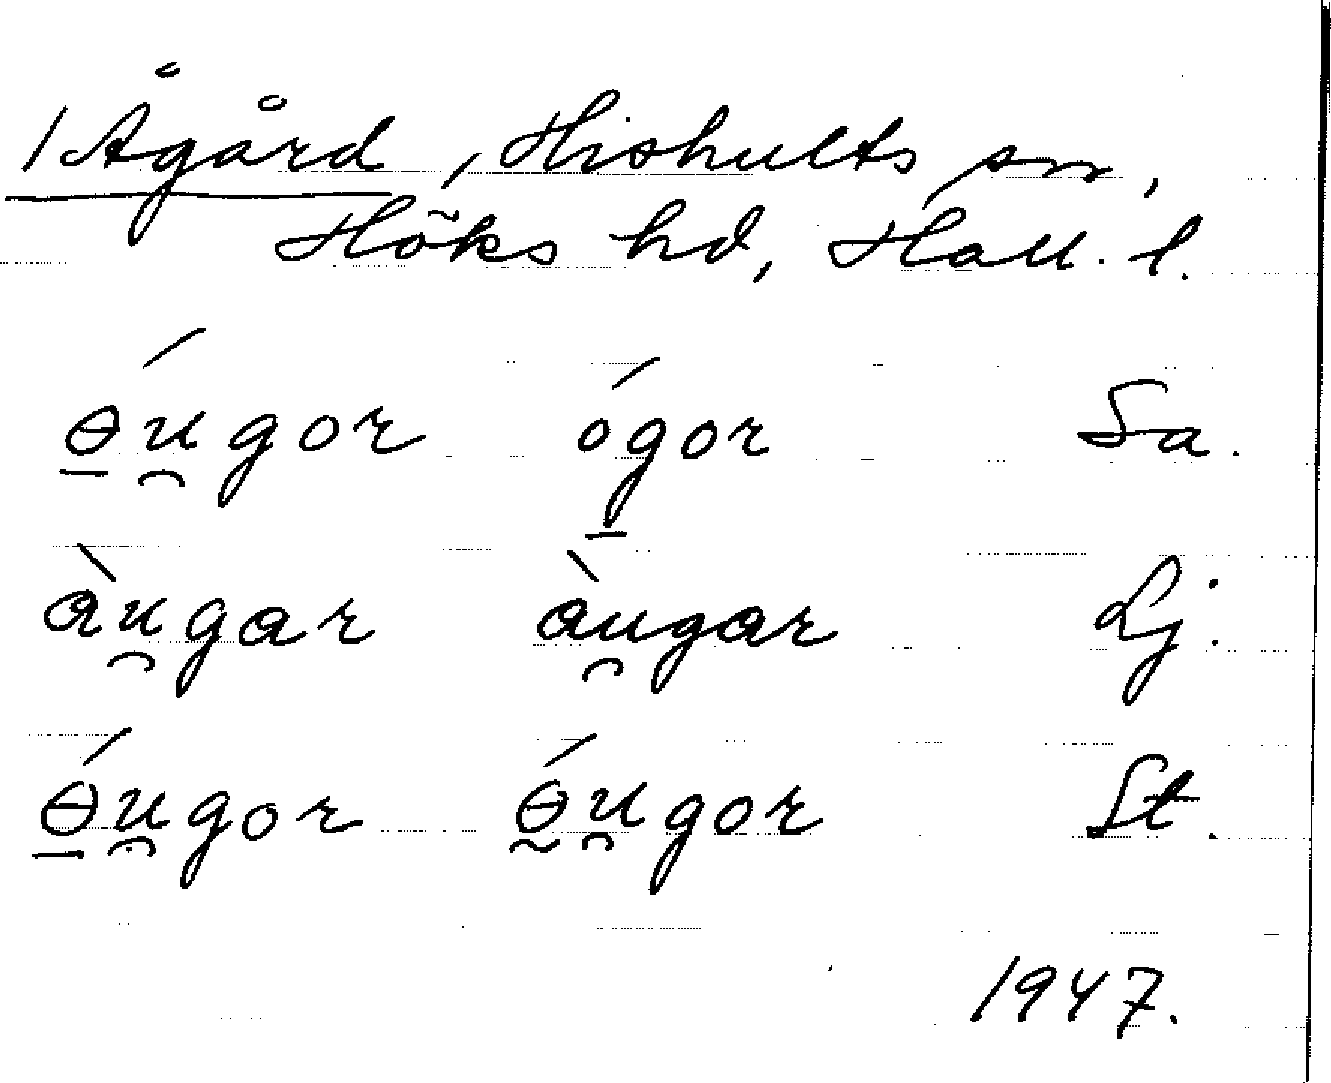 1 Ågård, Hishults sn,
Höks hd, Hall. l.
ɵ́u̯gor ógor Sa.
àu̯gar àu̯gar Lj.
ɵ́u̯gor ɵ́u̯gor St.
1947.